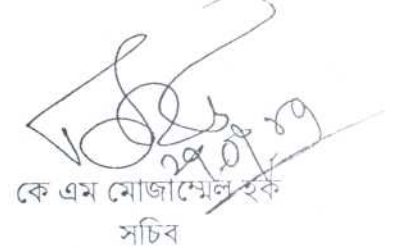 কে এম মোজাম্মেল হক
সচিব